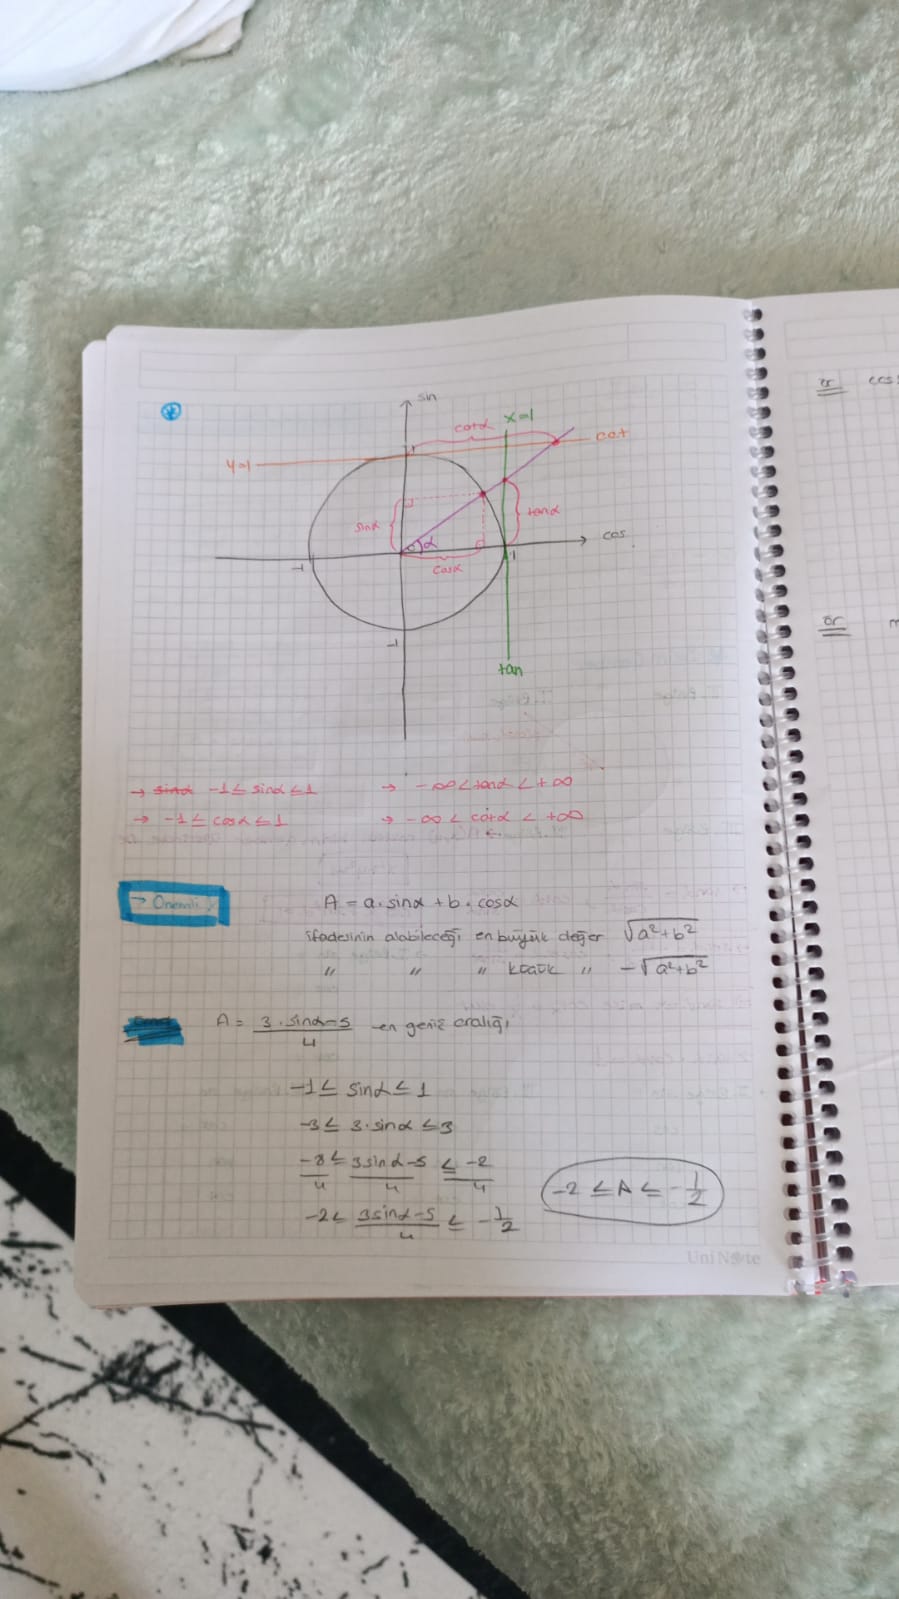 sin
x=1
cotα
cot
y=1
1
sinα
tanα
α
cos
1
-1
cosα
-1
tan
→ sinα -1 ≤ sinα ≤ 1
→ -∞ < tanα < +∞
→ -1 ≤ cosα ≤ 1
→ -∞ < cotα < +∞
→ Önemli
A = a. sinα + b. cosα
ifadesinin alabileceği en büyük değer √a²+b²
" " " küçük " -√a²+b²
A = 3. sinα-5 / 4 en geniş aralığı
-1 ≤ sinα ≤ 1
-3 ≤ 3. sinα ≤ 3
-8/4 ≤ 3sinα-5/4 ≤ -2/4
-2 ≤ A ≤ -1/2
-2 ≤ 3sinα-5/4 ≤ -1/2
Uni Note
ör
cos
ör